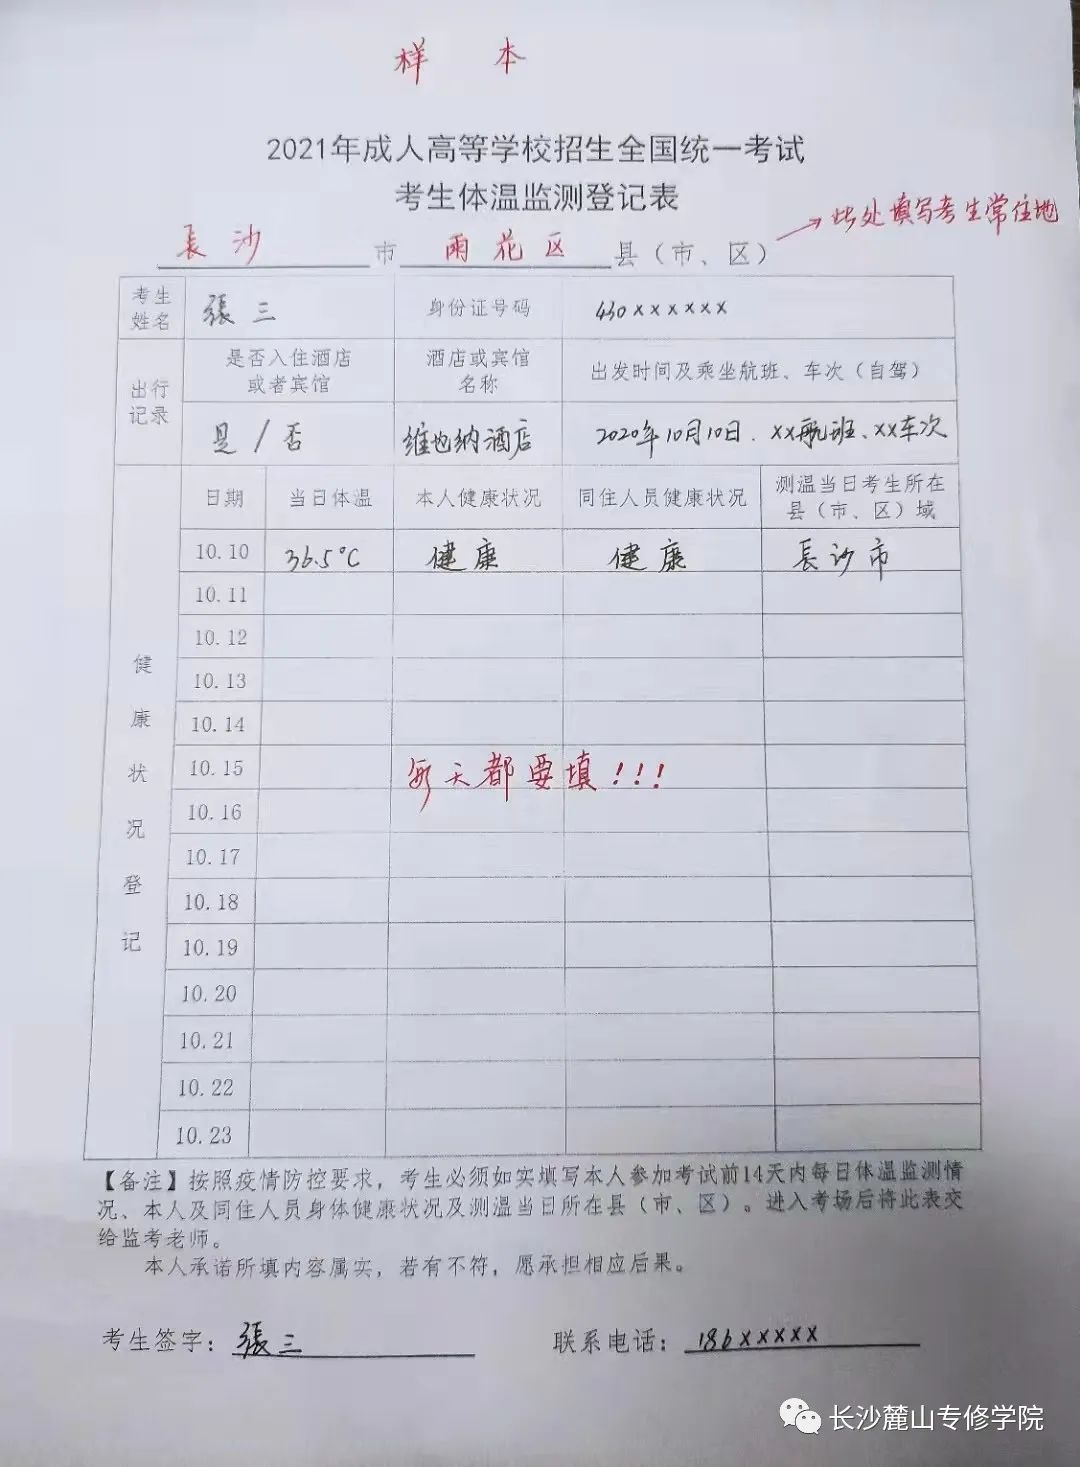 样 本
2021年成人高等学校招生全国统一考试
考生体温监测登记表
→此处填写考生常住地
長沙 市 雨花区 县（市、区）
考生姓名 張三 身份证号码 430××××××
出行记录 是否入住酒店或者宾馆 酒店或宾馆名称 出发时间及乘坐航班、车次（自驾）
是/否 维也纳酒店 2020年10月10日.××航班、××车次
健康状况登记
日期 当日体温 本人健康状况 同住人员健康状况 测温当日考生所在县（市、区）域
10.10 36.5°C 健康 健康 長沙市
10.11
10.12
10.13
10.14
10.15
每天都要填!!!
10.16
10.17
10.18
10.19
10.20
10.21
10.22
10.23
【备注】按照疫情防控要求，考生必须如实填写本人参加考试前14天内每日体温监测情
况、本人及同住人员身体健康状况及测温当日所在县（市、区）。进入考场后将此表交
给监考老师。
本人承诺所填内容属实，若有不符，愿承担相应后果。
考生签字：張三 联系电话：186×××××
长沙麓山专修学院